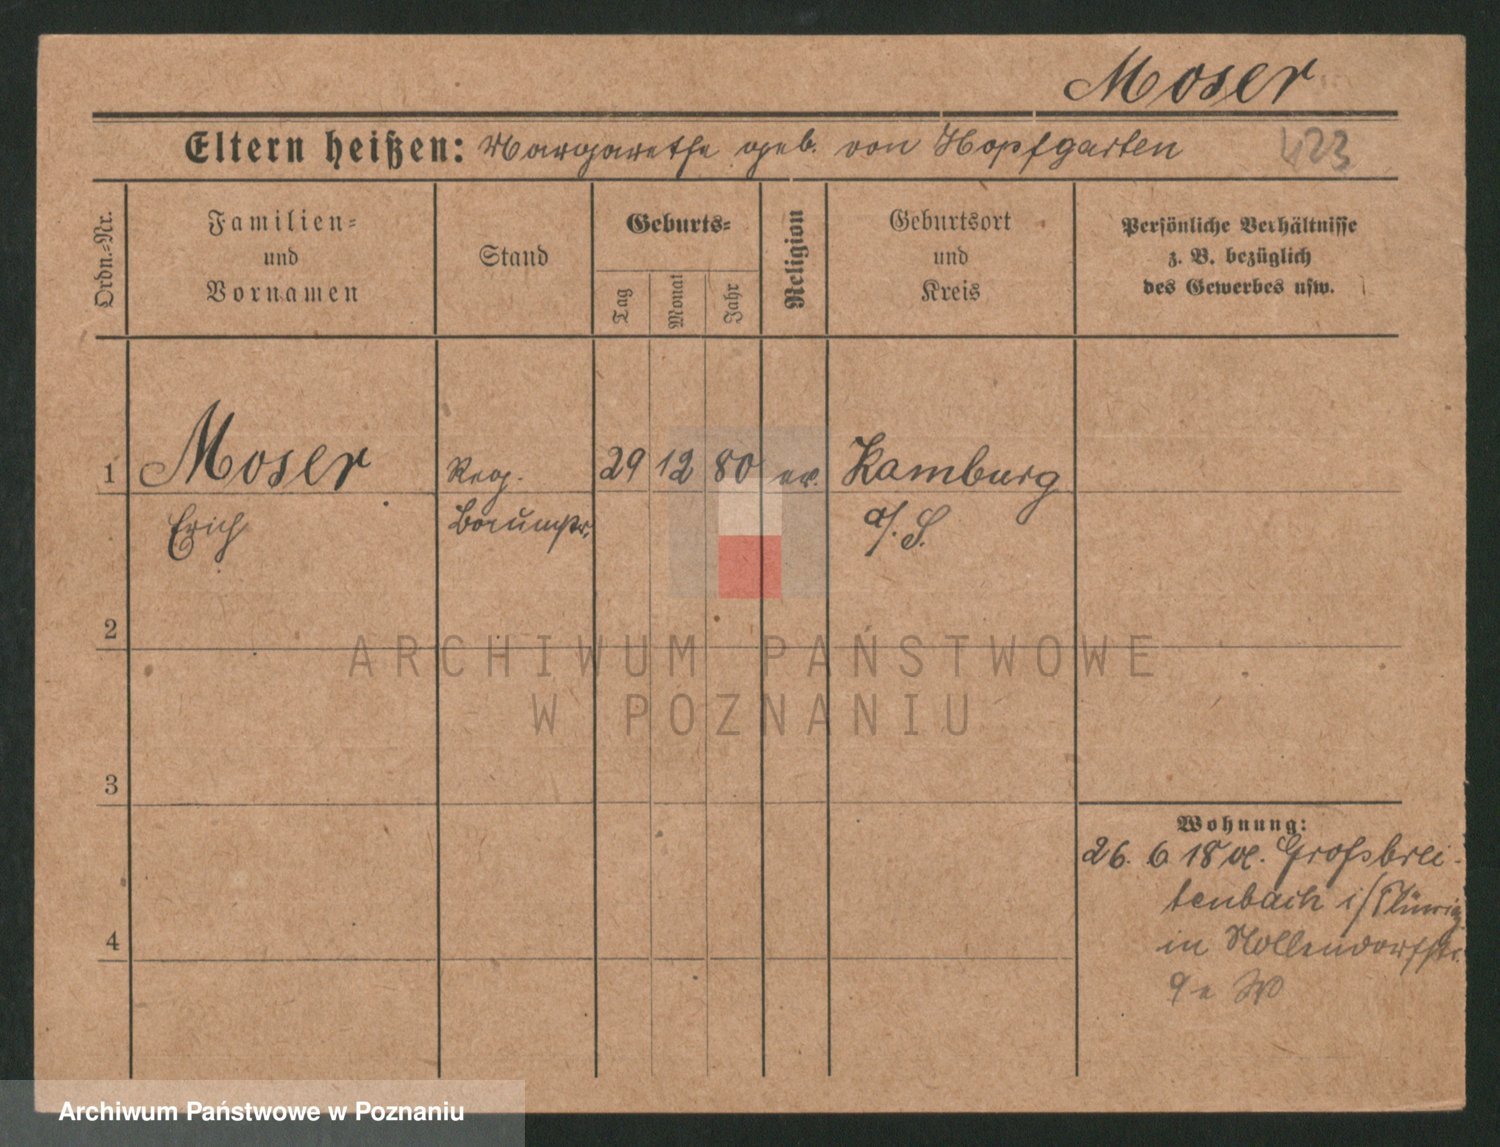 Moser
Eltern heißen: Margarethe geb. von Hopfgarten 423
Ordn.-Nr.
Familien-
und
Vornamen
Stand
Geburts-
Tag
Monat
Jahr
Religion
Geburtsort
und
Kreis
Persönliche Verhältnisse
z. B. bezüglich
des Gewerbes usw.
1 Moser Reg. 29 12 80 ev. Kamburg
Erich Baumstr. a/. S.
2
ARCHIWUM PAŃSTWOWE
W POZNANIU
3
Wohnung:
26. 6 18 v. Grossbrei-
tenbach i/Thüring.
in Nollendorfstr.
9a
4
Archiwum Państwowe w Poznaniu